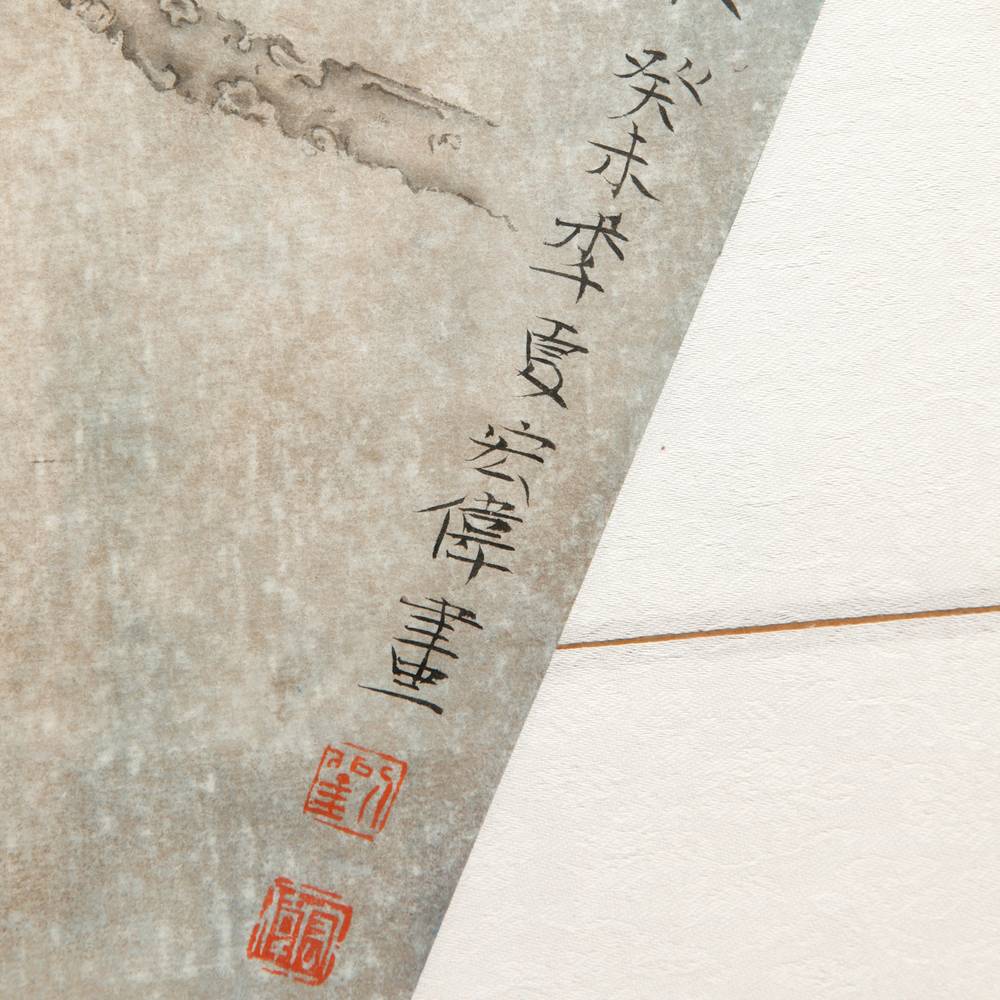 癸未季夏宏偉畫
劉